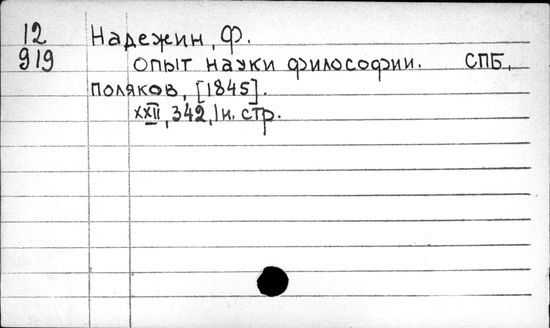 12 Надежин, Ф.
919 опыт науки философии. СПБ,
Поляков, [1845].
XXII, 342, 1н. стр.